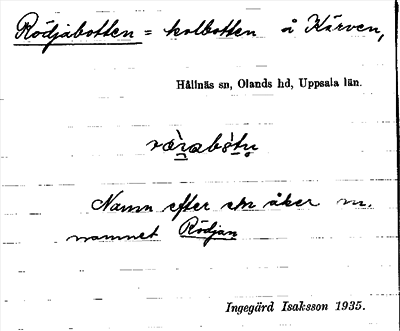 Rödjabotten = kolbotten å Kärven,
Hållnäs sn, Olands hd, Uppsala län.
Namn efter en åker m.
namnet Rödjan
Ingegärd Isaksson 1935.